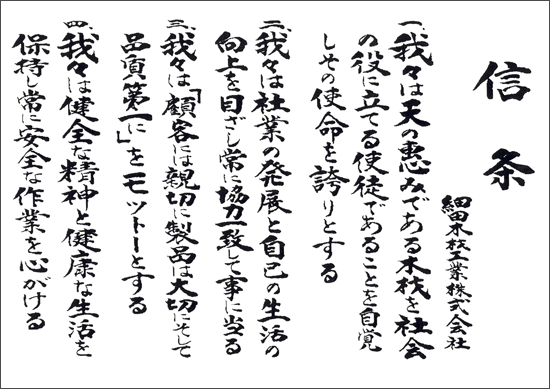 信条
細田木材工業株式会社
一、我々は天の恵みである木材を社会
の役に立てる使徒であることを自覚
しその使命を誇りとする
二、我々は社業の発展と自己の生活の
向上を目ざし常に協力一致して事に当る
三、我々は「顧客には親切に製品は大切にそして
品質第一に」をモットーとする
四、我々は健全な精神と健康な生活を
保持し常に安全な作業を心がける